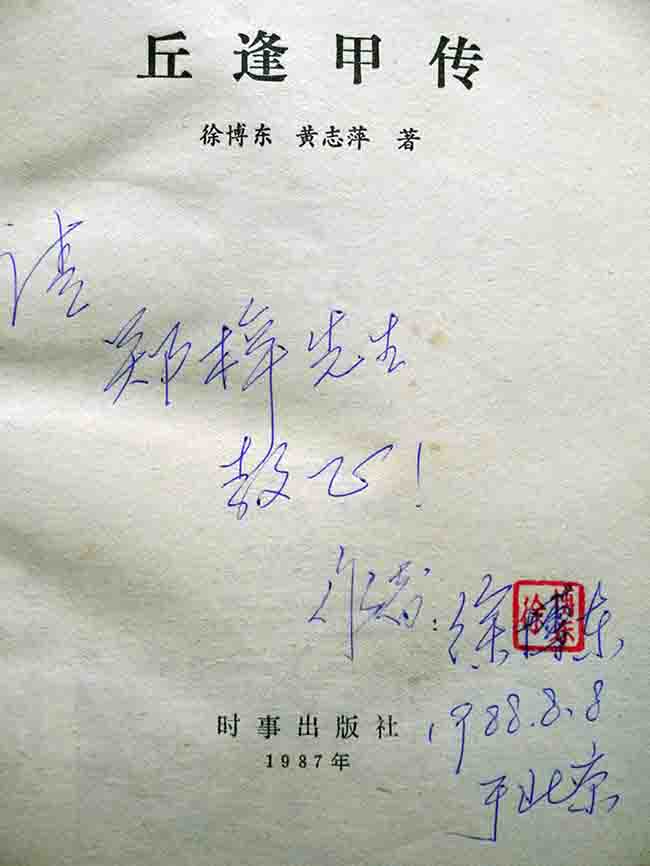 丘逢甲传
徐博东 黄志萍 著
请
郑梓先生
教正!
作者:徐博东
徐博东
时事出版社
1987年
1988.8.8
于北京